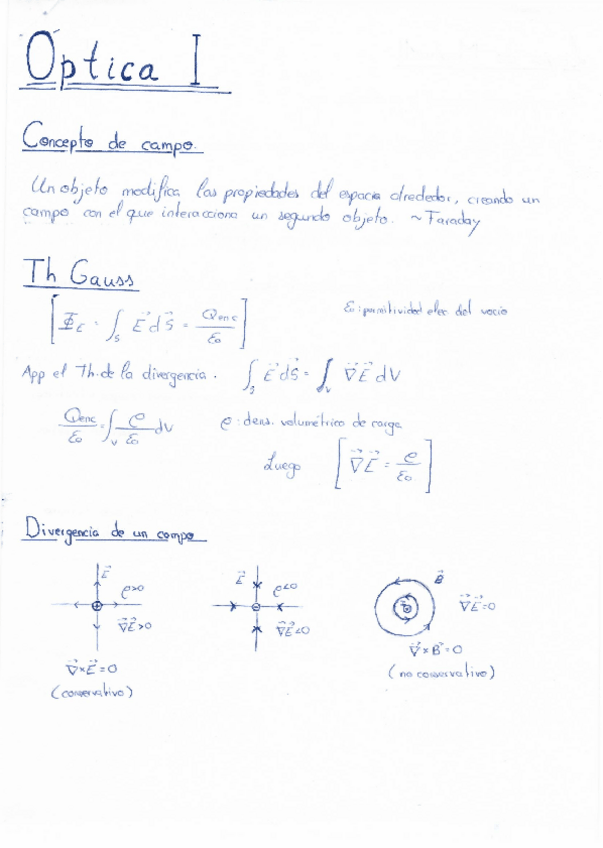 Optica I
Concepto de campo.
Un objeto modifica las propiedades del espacio alrededor, creando un
campo con el que interacciona un segundo objeto. ~Faraday
Th Gauss
[Φ_E = ∫_S E⃗ dS⃗ = Qenc/ε₀]
ε₀: permitividad elec. del vacío
App el Th. de la divergencia. ∫_S E⃗ dS⃗ = ∫_V ∇⃗E⃗ dV
Qenc/ε₀ = ∫_V ρ/ε₀ dV
ρ: dens. volumétrica de carga
Luego [∇⃗E⃗ = ρ/ε₀]
Divergencia de un campo
E⃗ ρ>0
∇⃗E⃗>0
∇⃗×E⃗=0
(conservativo)
E⃗ ρ<0
∇⃗E⃗<0
B⃗
∇⃗E⃗=0
∇⃗×B⃗=0
(no conservativo)